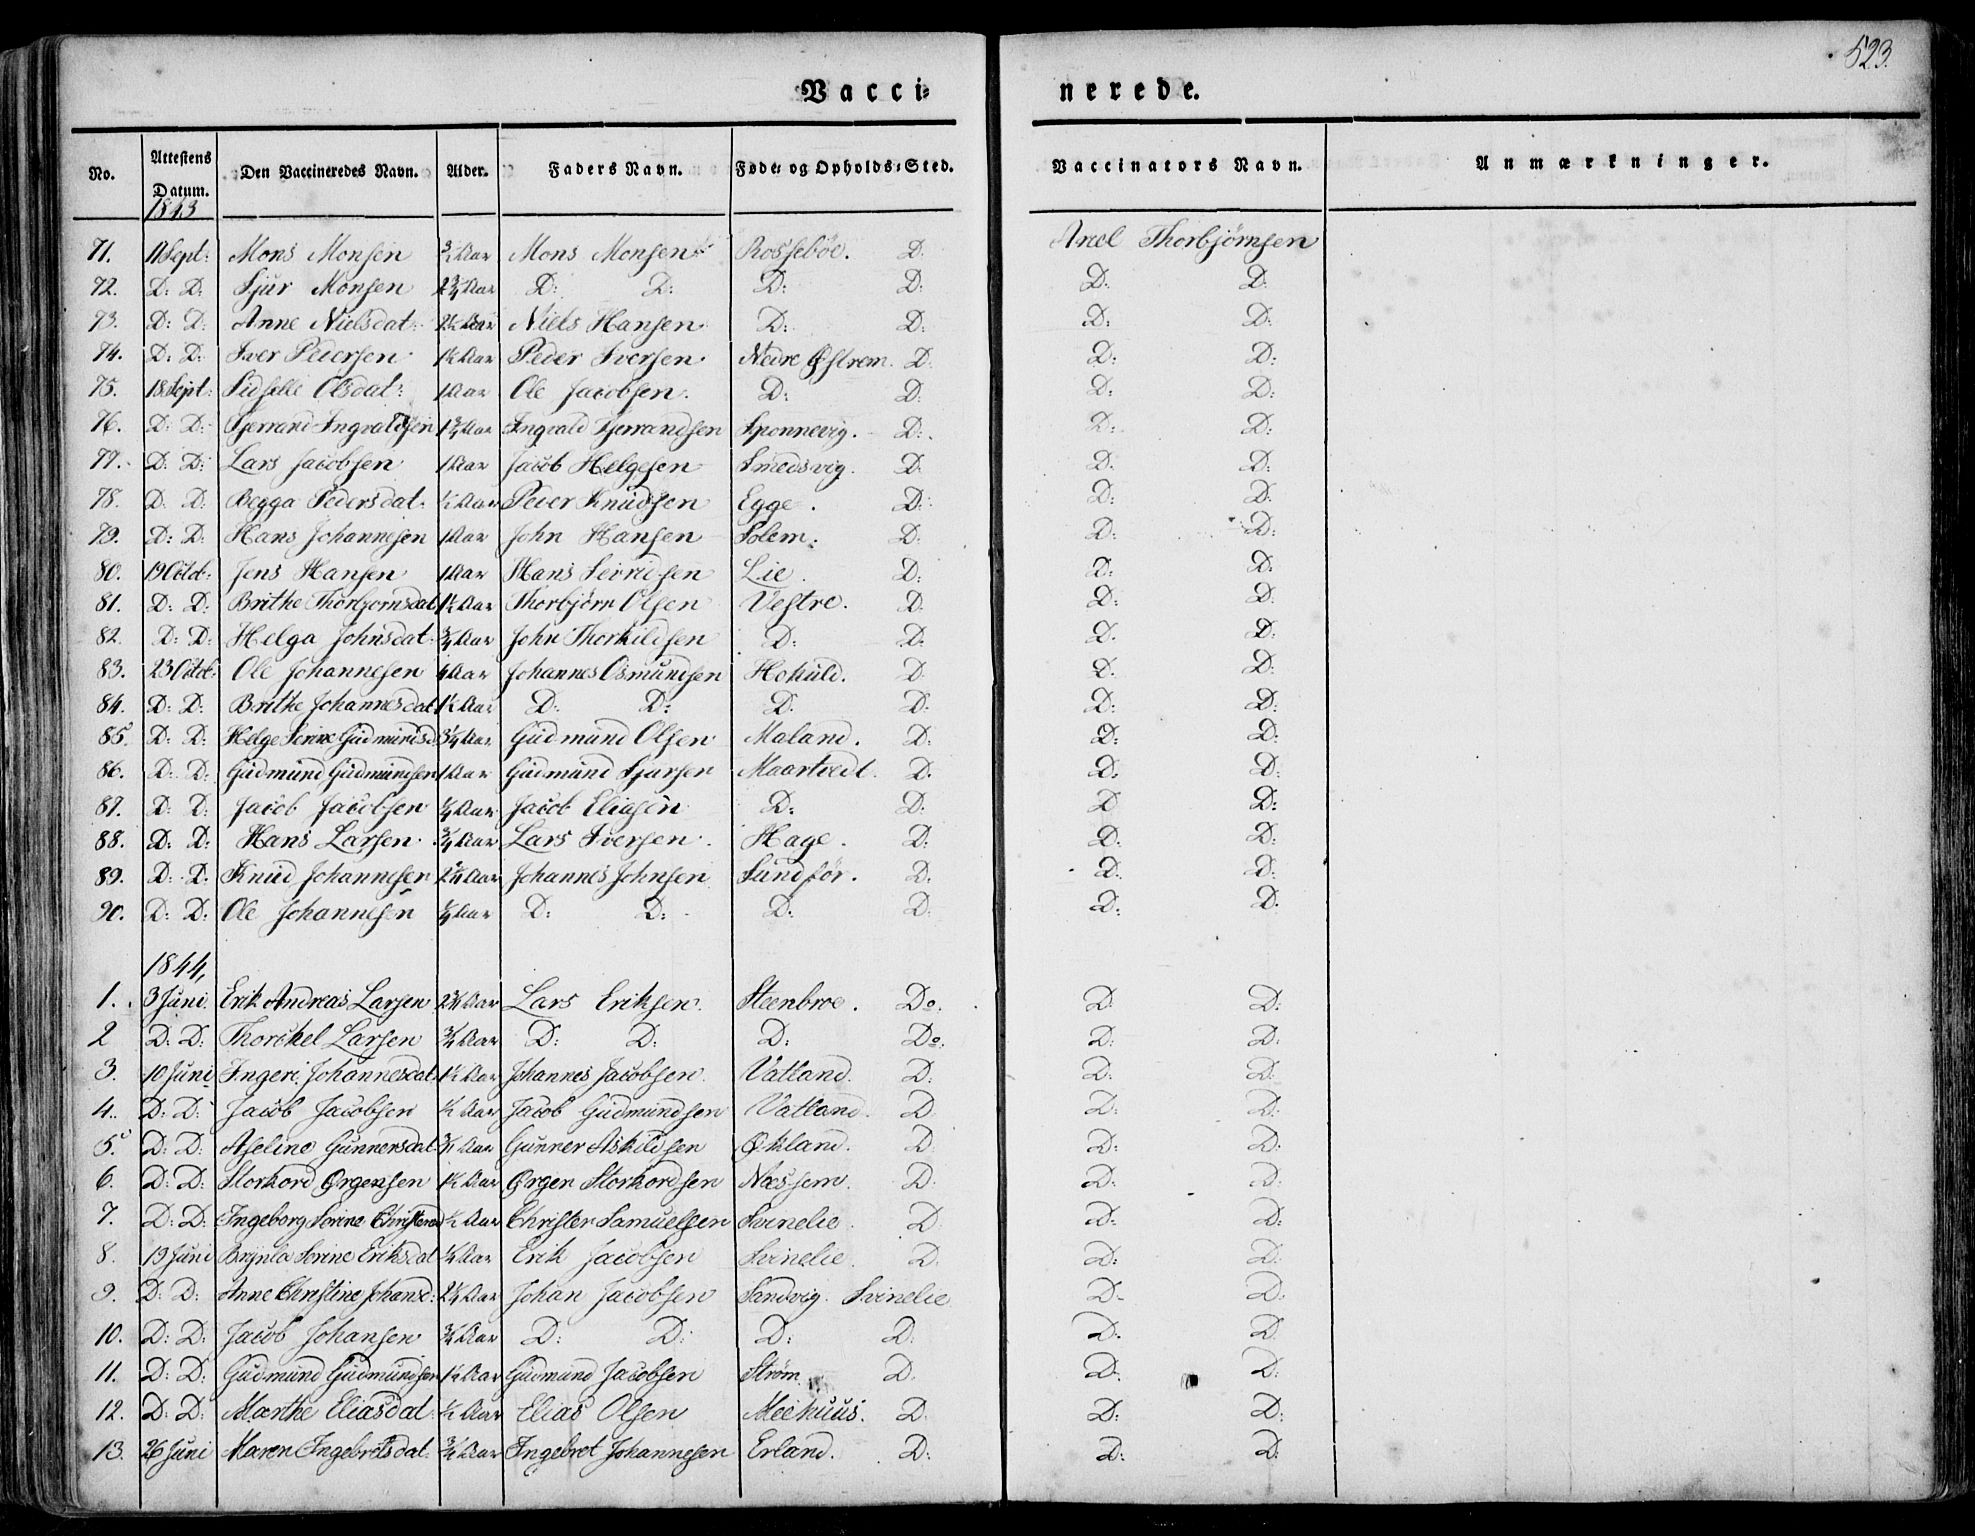 523.
Vacci=nerede.
No. Attestens Datum. Den Vaccineredes Navn. Alder. Faders Navn. Føde= og Opholds=Sted. Vaccinators Navn. Anmærkninger.
1843
71. 11 Sept: Mons Monsen ¾ Aar Mons Monsen Rossebøe. D. Axel Thorbjörnsen
72. D: D: Sjur Monsen 2¾ Aar D: D: D: D: D: D:
73. D: D: Anne Nielsdat: Aar Niels Hansen D: D: D: D:
74. D: D: Iver Pedersen 1½ Aar Peder Iversen. Nedre Østrem. D. D: D:
75. 18 Sept: Sidselle Olsdat: 1 Aar Ole Jacobsen. D: D: D: D:
76. D: D: Tjerrand Ingvaldsen 1¾ Aar Ingvald Tjerrandsen Sponnevig. D: D: D:
77. D: D: Lars Jacobsen 1 Aar Jacob Helgesen Smedsvig. D. D. D:
78. D. D. Begga Pedersdat. ½ Aar Peder Knudsen Egge. D: D: D:
79. D: D. Hans Johannesen 1 Aar John Hansen Solem. D. D: D:
80. 19 Octob: Jens Hansen 1 Aar Hans Sevridsen Lie. D: D: D:
81. D: D: Brithe Thorbjornsdat 1½ Aar Thorbjörn Olsen Vestre. D. D: D.
82. D: D: Helga Johnsdat ¾ Aar John Thorkildsen D: D. D. D:
83. 23 Octob: Ole Johannesen 4 Aar Johannes Osmundsen Hokuld. D. D. D:
84. D: D: Brithe Johannesdat 1½ Aar D: D: D. D. D: D:
85. D: D: Helge Serine Gudmundsd 3¼ Aar Gudmund Olsen Maland. D: D: D:
86. D: D: Gudmund Gudmundsen 1 Aar Gudmund Sjursen Maartvedt. D. D. D:
87. D: D: Jacob Jacobsen Aar Jacob Eliasen D: D. D D:
88. D: D: Hans Larsen ¾ Aar Lars Iversen. Hage. D. D: D:
89. D: D. Knud Johannesen Aar Johannes Johnsen Sundför. D. D. D:
90. D: D: Ole Johannesen ¾ Aar D: D: D. D. D: D.
1844,
1. 3 Juni. Erik Andreas Larsen 2¾ Aar Lars Eriksen. Steenbroe. Do. D. D:
2 D: D: Thorckel Larsen ¾ Aar D: D: D: Do. D: D.
3. 10 Juni Ingeri Johannesdat. 1½ Aar Johannes Jacobsen. Vatland. D. D: D.
4. D: D: Jacob Jacobsen ½ Aar Jacob Gudmundsen Vatland. D. D: D.
5. D: D: Aseline Gunnersdat ¾ Aar Gunner Askildsen Økland. D D: D:
6. D: D: Storkord Ørgensen 1½ Aar Ørgen Storkordsen Næssem. D. D: D.
7. D: D: Ingeborg Serine Christensd ½ Aar Christen Samuelsen Svinelie. D D: D:
8. 19 Juni Brynla Serine Eriksdat ¼ Aar Erik Jacobsen Svinelie. D. D: D.
9. D: D: Anne Christine Johansd: 2¾ Aar Johan Jacobsen Sandvig. Svinelie D. D.
10. D: D: Jacob Johansen ¾ Aar D: D: D: D. D. D.
11. D: D: Gudmund Gudmundsen 1½ Aar Gudmund Jacobsen Strøm. D. D. D.
12. D: D: Marthe Eliasdat ½ Aar Elias Olsen Meehuus. D. D: D:
13. 26 Juni Maren Ingebretsdat. ¾ Aar Ingebret Johannesen Erland. D: D: D: